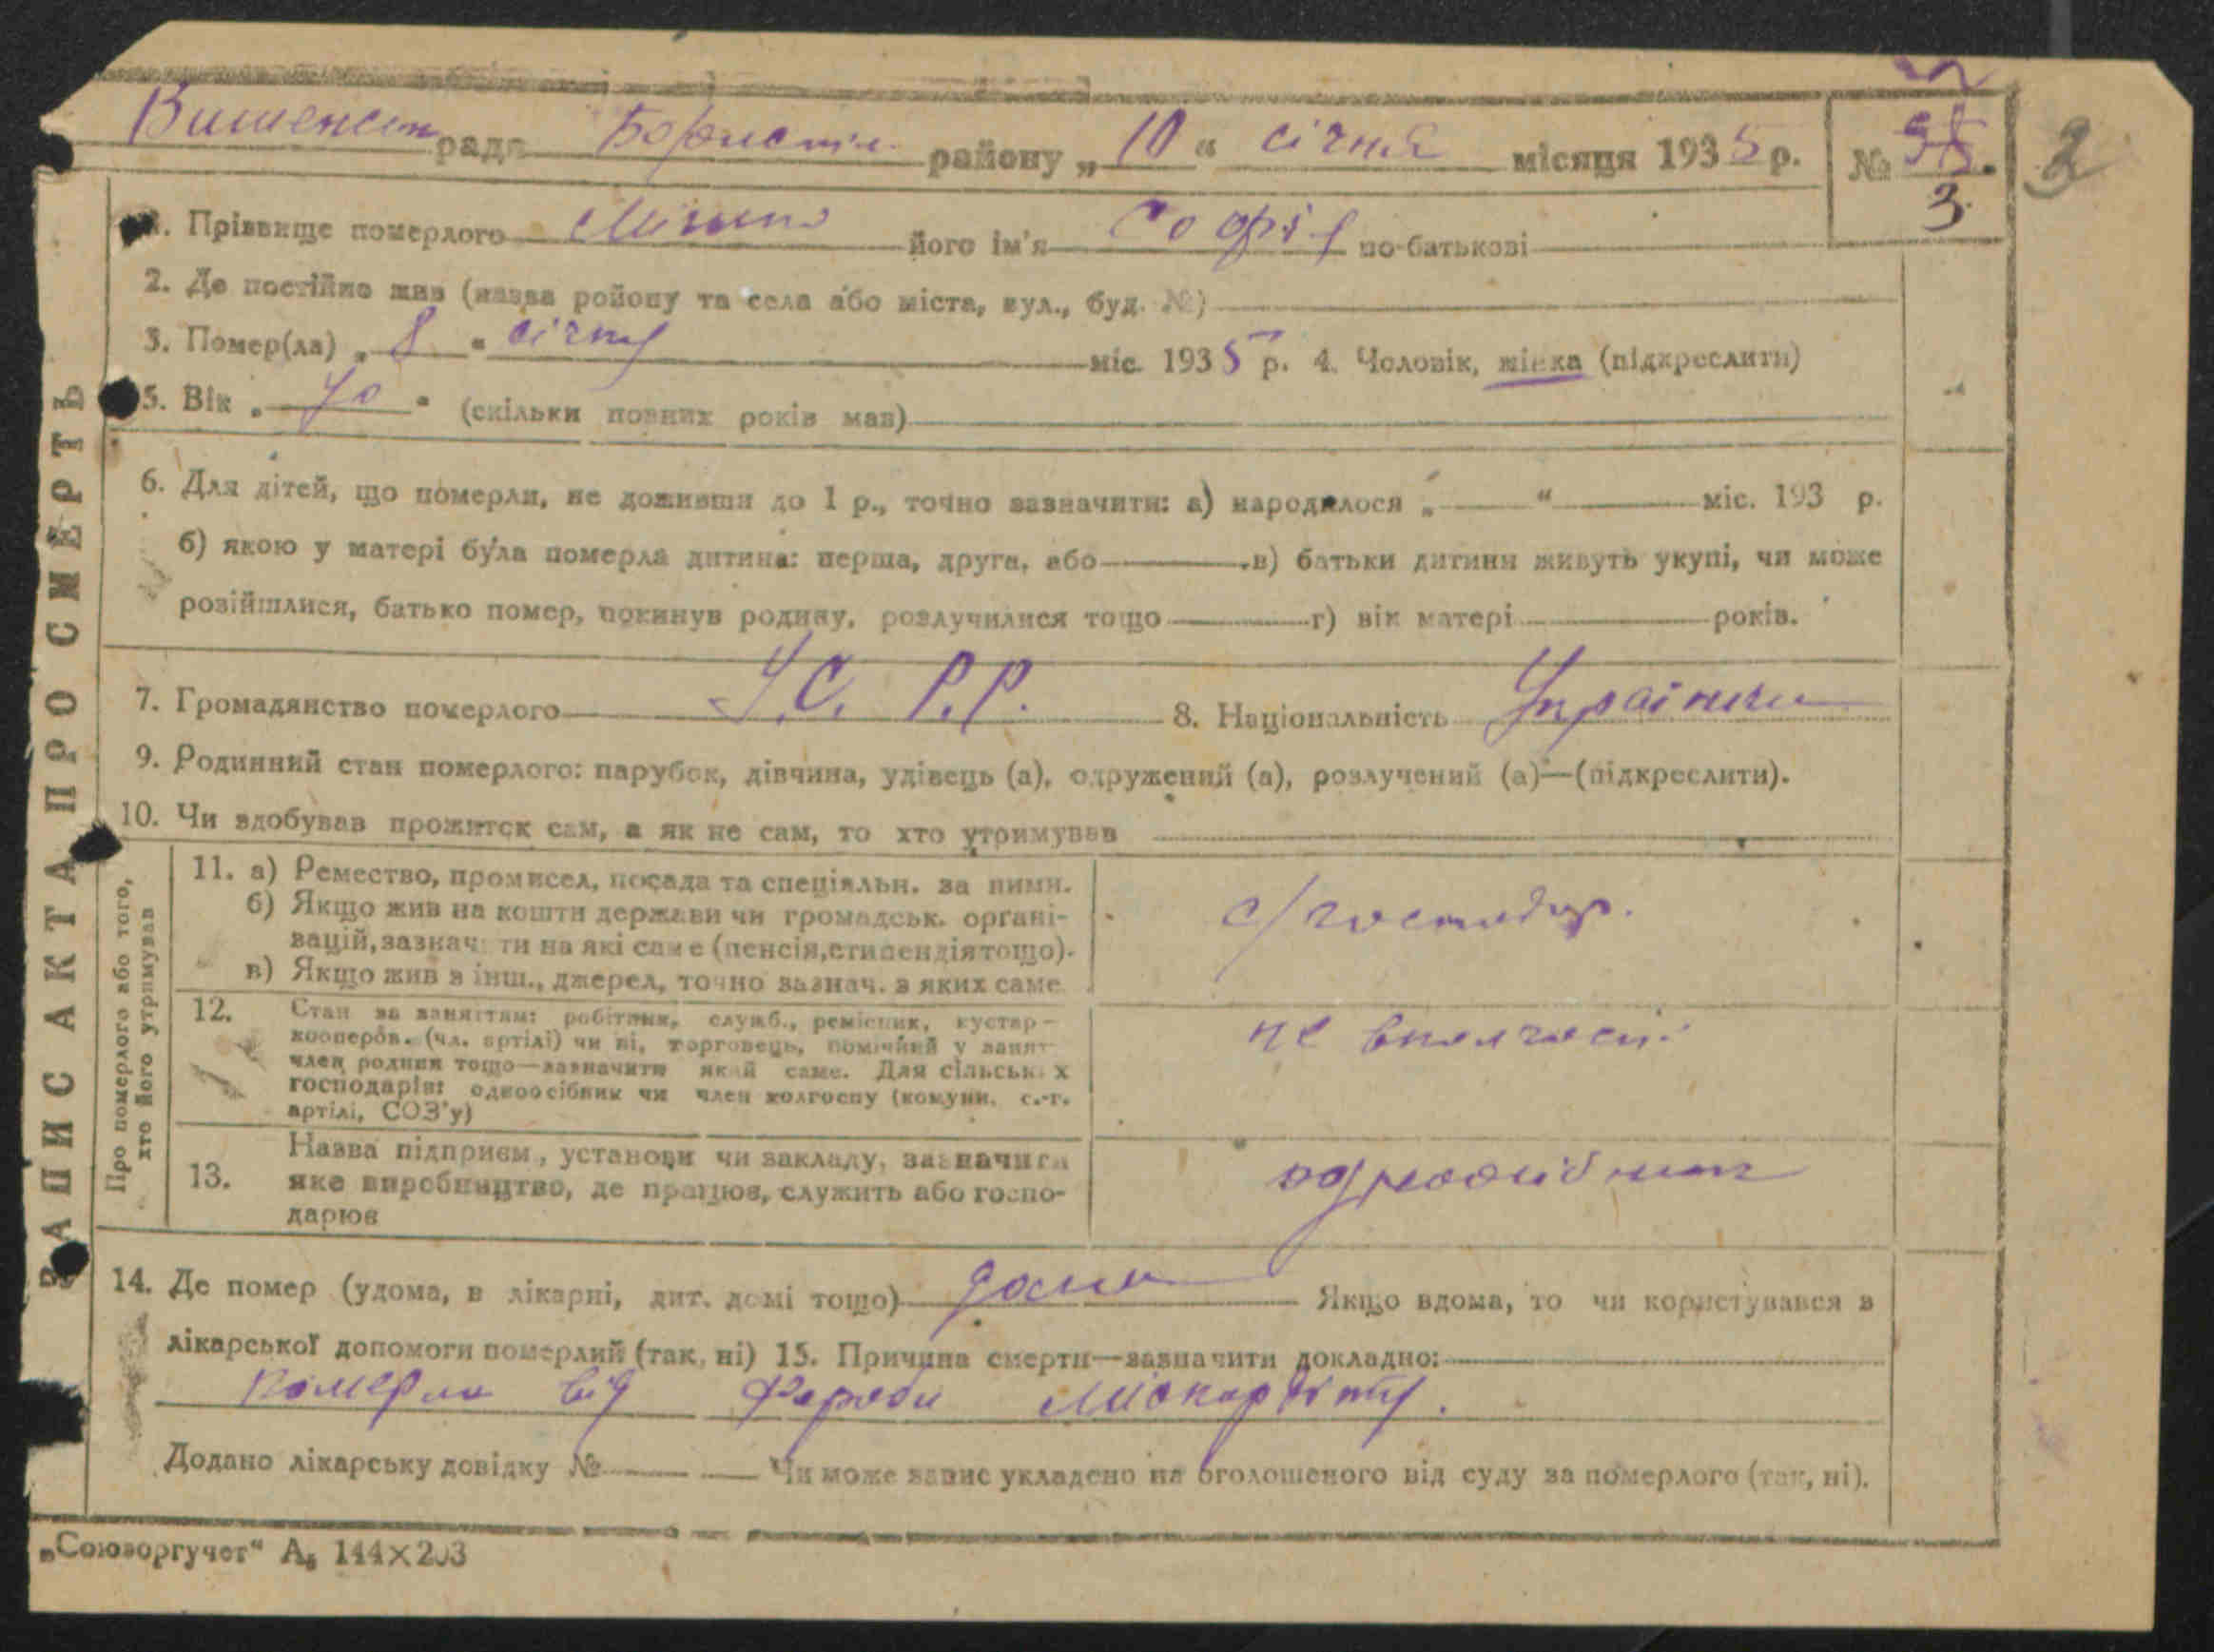 Вишенськ рада Бориспіл. району „10“ січня місяця 1935 р. №
3
2
1. Прізвище померлого його ім'я Софія по-батькові
2. Де постійно жив (назва району та села або міста, вул., буд. №)
3. Помер(ла) „8“ січня міс. 1935 р. 4. Чоловік, жінка (підкреслити)
5. Вік „70“ (скільки повних років мав)
6. Для дітей, що померли, не доживши до 1 р., точно зазначити: а) народилося „ “ міс. 193 р.
б) якою у матері була померла дитина: перша, друга, або в) батьки дитини живуть укупі, чи може
розійшлися, батько помер, покинув родину, розлучилися тощо г) вік матері років.
7. Громадянство померлого У.С.Р.Р. 8. Національність Українка
9. Родинний стан померлого: парубок, дівчина, удівець (а), одружений (а), розлучений (а)—(підкреслити).
10. Чи здобував прожиток сам, а як не сам, то хто утримував
Про померлого або того,
хто його утримував
11. а) Ремество, промисел, посада та спеціяльн. за ними.
б) Якщо жив на кошти держави чи громадськ. органі-
зацій, зазначити на які саме (пенсія, стипендія тощо).
в) Якщо жив з інш., джерел, точно зазнач. з яких саме
с/господар.
12. Стан за заняттям: робітник, служб., ремісник, кустар-
кооперов. (чл. артілі) чи ні, торговець, помічний у занят-
член родини тощо—зазначити який саме. Для сільських
господарів: одноосібник чи член колгоспу (комуни, с.-г.
артілі, СОЗ'у)
не
13. Назва підприєм., установи чи закладу, зазначити
яке виробництво, де працює, служить або госпо-
дарює
одноосібник
14. Де помер (удома, в лікарні, дит. домі тощо) дома Якщо вдома, то чи користувався з
лікарської допомоги померлий (так, ні) 15. Причина смерти—зазначити докладно:
померла від хороби Міокардіту.
Додано лікарську довідку № Чи може запис укладено на оголошеного від суду за померлого (так, ні).
„Союзоргучет“ А₅ 144×203
ЗАПИС АКТА ПРО СМЕРТЬ